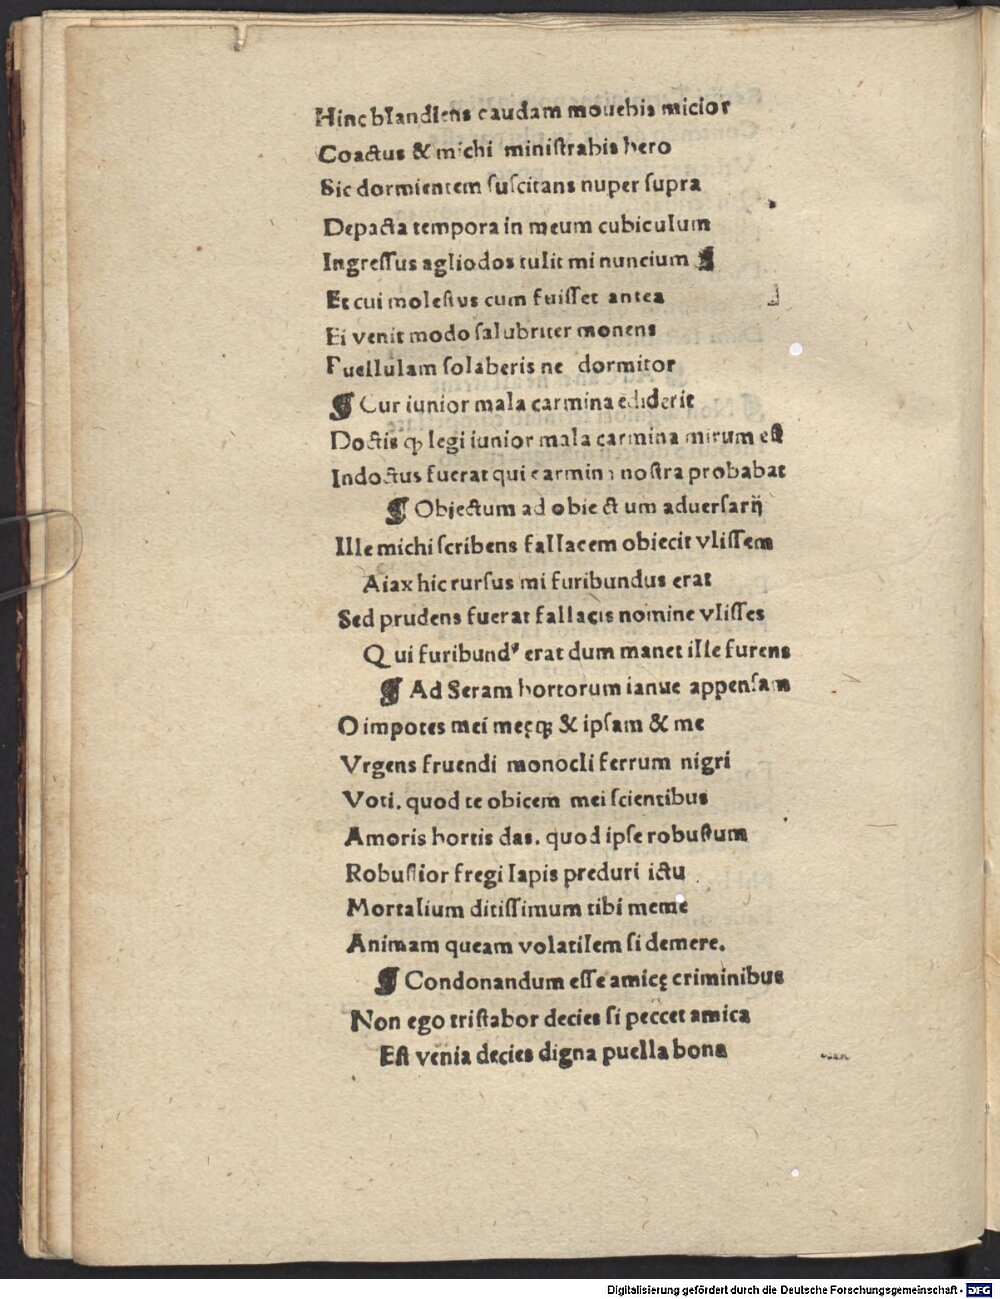 Hinc blandiens caudam mouebis micior
Coactus & michi ministrabis hero
Sic dormientem ſuſcitans nuper ſupra
Depacta tempora in meum cubiculum
Ingreſſus agliodos tulit mi nuncium ¶
Et cui moleſtus cum fuiſſet antea
Ei venit modo ſalubriter monens
Puellulam ſolaberis ne dormitor
¶ Cur iunior mala carmina ediderit
Doctis ꝙ legi iunior mala carmina mirum eſt
Indoctus fuerat qui carmina noſtra probabat
¶ Objectum ad obiectum aduerſarij
Ille michi ſcribens fallacem obiecit vliſſem
Aiax hic rurſus mi furibundus erat
Sed prudens fuerat fallacis nomine vliſſes
Qui furibundꝰ erat dum manet ille furens
¶ Ad Seram hortorum ianue appenſam
O impotes mei meęqꝫ & ipſam & me
Vrgens fruendi monocli ferrum nigri
Voti. quod te obicem mei ſcientibus
Amoris hortis das. quod ipſe robuſtum
Robuſtior fregi lapis preduri ictu
Mortalium ditiſſimum tibi meme
Animam queam volatilem ſi demere.
¶ Condonandum eſſe amicę criminibus
Non ego triſtabor decies ſi peccet amica
Eſt venia decies digna puella bona
Digitalisierung gefördert durch die Deutsche Forschungsgemeinschaft - DFG